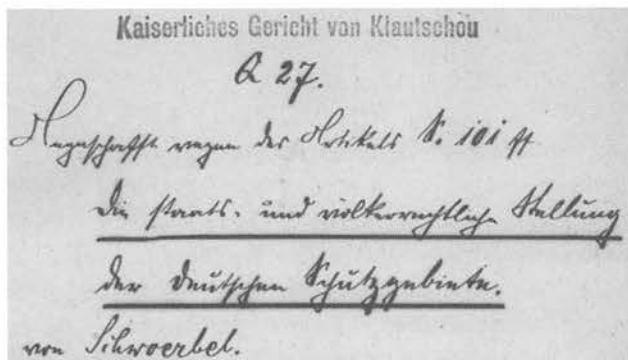 Kaiserliches Gericht von Kiautschou
Q 27.
Angeschafft wegen des Artikels S. 101 ff
die staats- und völkerrechtliche Stellung
der deutschen Schutzgebiete.
von Schwoerbel.